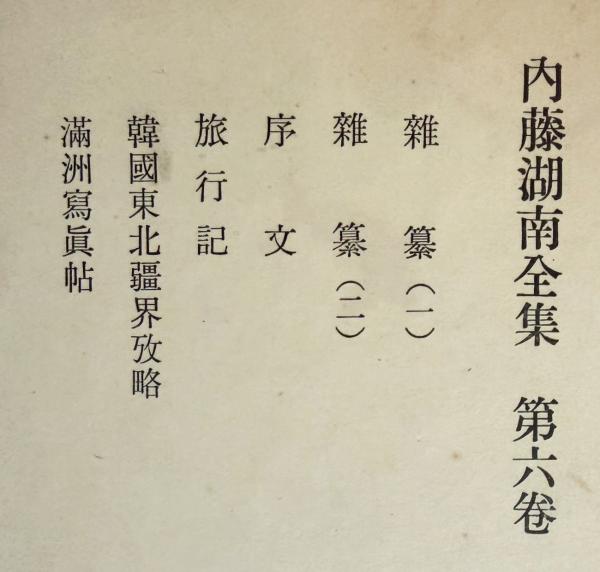 內藤湖南全集 第六卷
雜纂(一)
雜纂(二)
序文
旅行記
韓國東北疆界攷略
滿洲寫眞帖